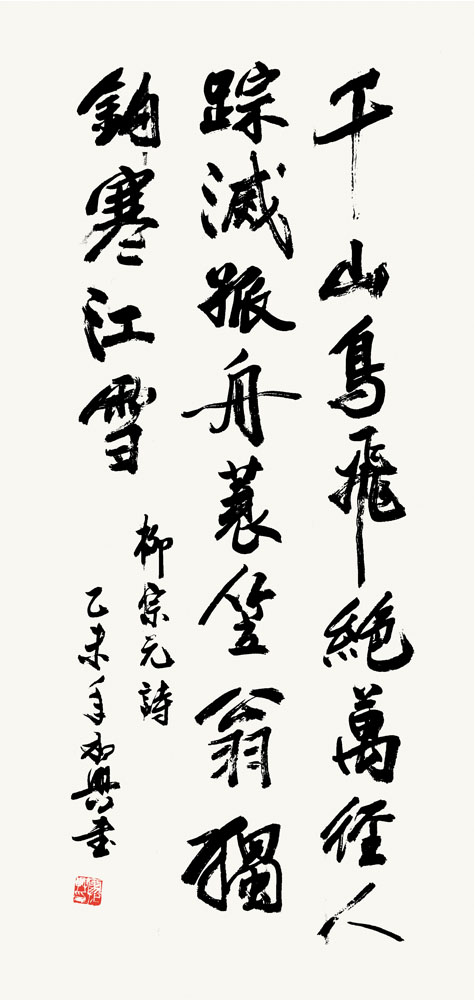 千山鳥飛絶萬徑人
踪滅孤舟蓑笠翁獨
釣寒江雪
柳宗元詩
乙未年永興書